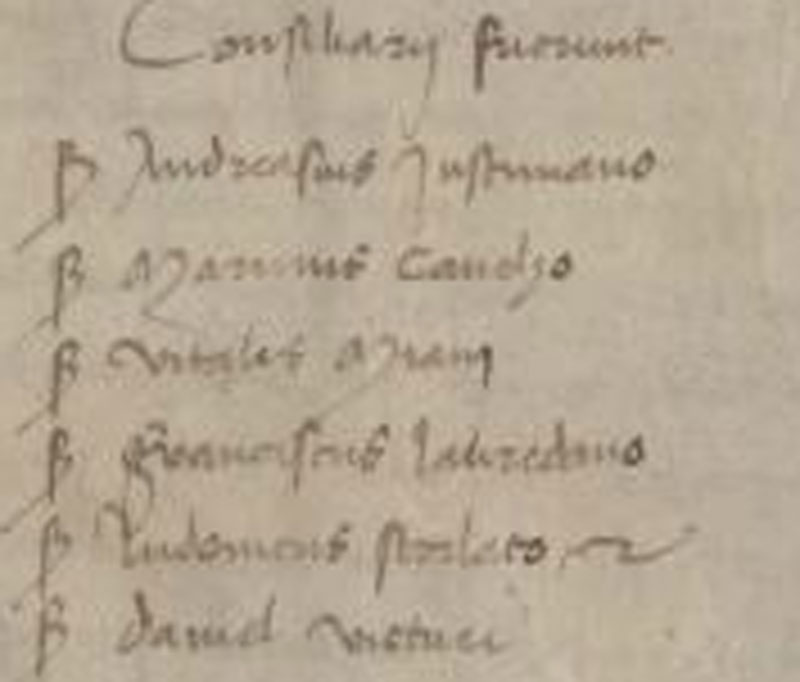 Consiliarij fuerunt
ß Andreasius Justiniano
ß Marinus Caucho
ß Vitalis Miani
ß Franciscus lauredano
ß ludovicus storlato
ß daniel victuri